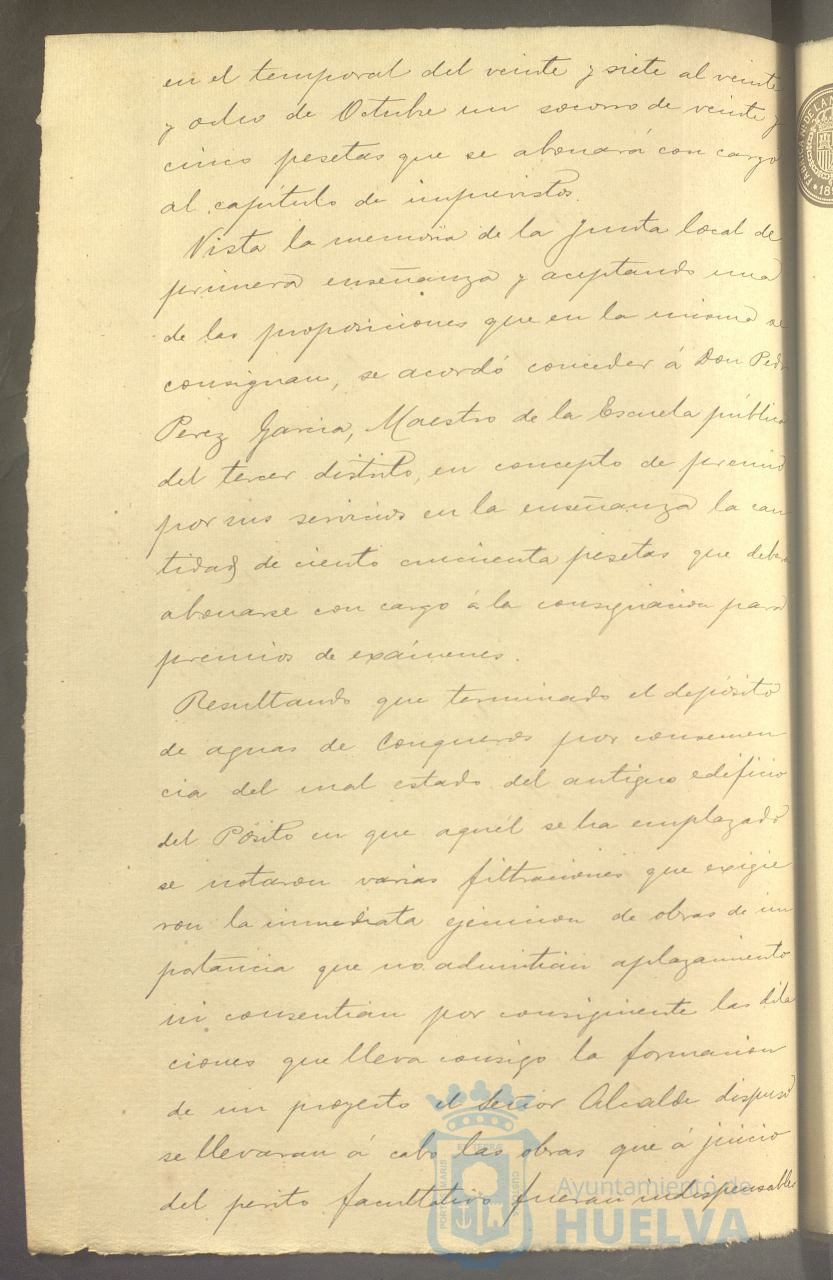 en el temporal del veinte y siete al veinte
y ocho de Octubre un socorro de veinte y
cinco pesetas que se abonará con cargo
al capítulo de imprevistos.
Vista la memoria de la Junta local de
primera enseñanza y aceptando una
de las proposiciones que en la misma se
consignan, se acordó conceder á Don Pedro
Perez Garcia, Maestro de la Escuela pública
del tercer distrito, en concepto de premio
por sus servicios en la enseñanza la can
tidad de ciento cincuenta pesetas que deberá
abonarse con cargo á la consignacion para
premios de exámenes.
Resultando que terminado el depósito
de aguas de Conqueros por consecuen
cia del mal estado del antiguo edificio
del Pósito en que aquél se ha emplazado
se notaron varias filtraciones que exigie
ron la inmediata ejecucion de obras de im
portancia que no admitian aplazamiento
ni consentian por consiguiente las dila
ciones que lleva consigo la formacion
de un proyecto el Señor Alcalde dispuso
se llevaran á cabo las obras que á juicio
del perito facultativo fueran indispensables
Ayuntamiento de
HUELVA